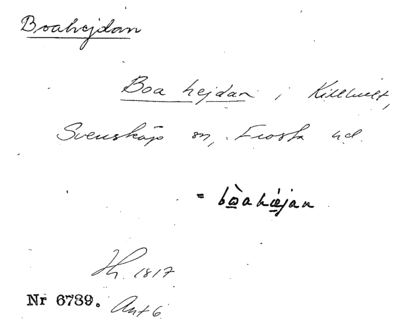 Boahejdan
Boa hejdan i Killhult,
Svensköp sn, Frosta hd.
= bòahæjan
Jh. 1817
Nr 6789. Ant 6